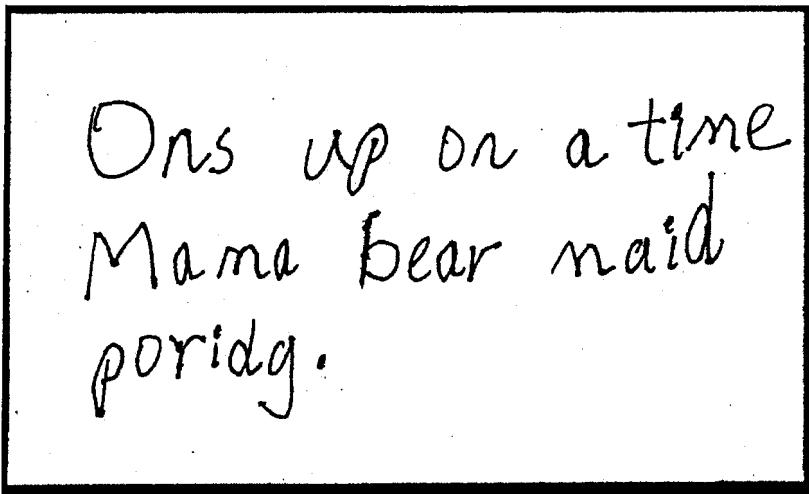 Ons up on a time
Mama bear maid
poridg.